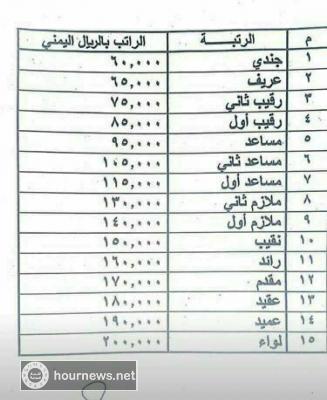 م الرتبـــة الراتب بالريال اليمني
١ جندي ٦٠,٠٠٠
٢ عريف ٦٥,٠٠٠
٣ رقيب ثاني ٧٥,٠٠٠
٤ رقيب أول ٨٥,٠٠٠
٥ مساعد ٩٥,٠٠٠
٦ مساعد ثاني ١٠٥,٠٠٠
٧ مساعد أول ١١٥,٠٠٠
٨ ملازم ثاني ١٣٠,٠٠٠
٩ ملازم أول ١٤٠,٠٠٠
١٠ نقيب ١٥٠,٠٠٠
١١ رائد ١٦٠,٠٠٠
١٢ مقدم ١٧٠,٠٠٠
١٣ عقيد ١٨٠,٠٠٠
١٤ عميد ١٩٠,٠٠٠
١٥ لواء ٢٠٠,٠٠٠
hournews.net